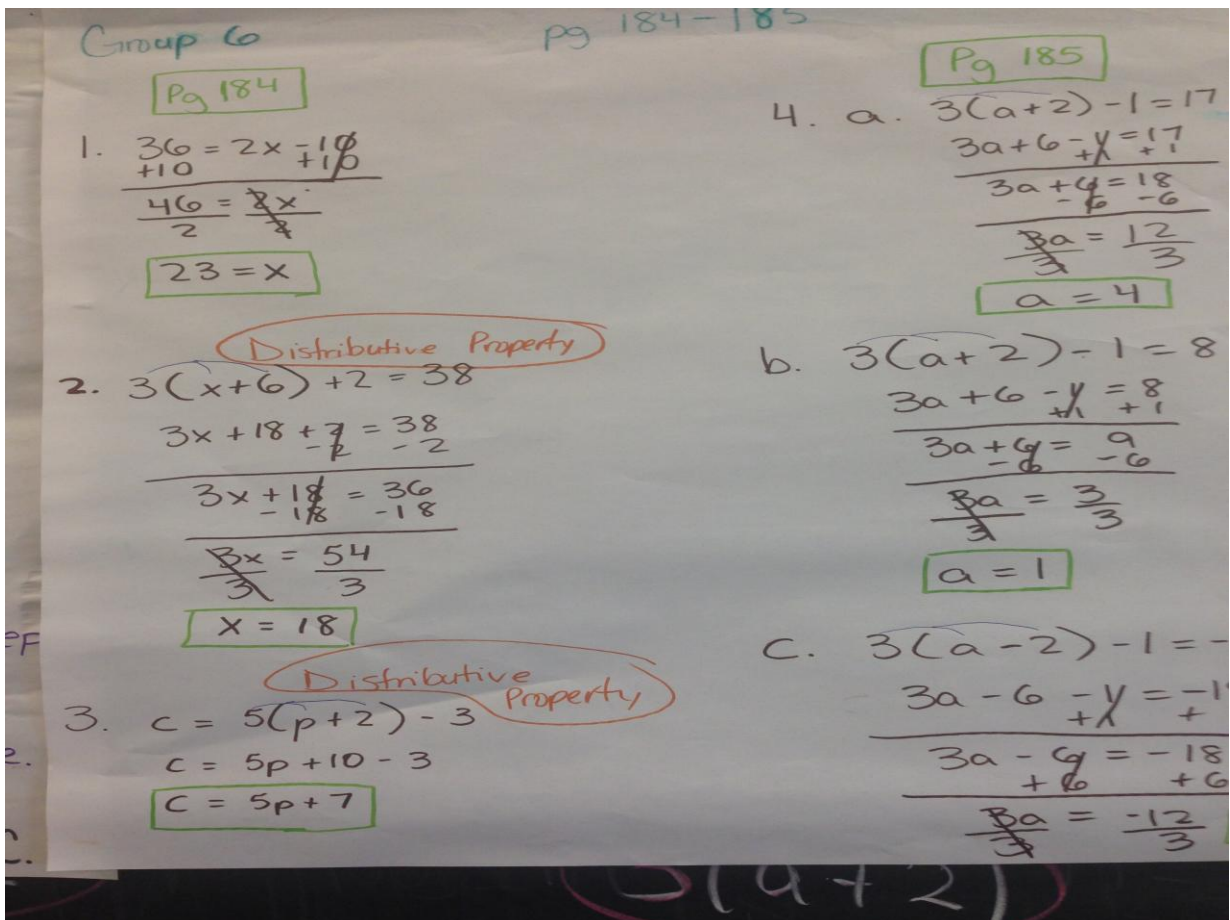 Group 6
pg 184-185
Pg 184
1. 36 = 2x - 10
+10 +10
46 = 2x
2 2
23 = x
Distributive Property
2. 3(x+6) + 2 = 38
3x + 18 + 2 = 38
- 2 - 2
3x + 18 = 36
- 18 - 18
3x = 54
3 3
x = 18
Distributive
Property
3. c = 5(p+2) - 3
c = 5p + 10 - 3
c = 5p + 7
Pg 185
4. a. 3(a+2) - 1 = 17
3a + 6 - 1 = 17
+1 +1
3a + 6 = 18
- 6 - 6
3a = 12
3 3
a = 4
b. 3(a+2) - 1 = 8
3a + 6 - 1 = 8
+1 +1
3a + 6 = 9
- 6 - 6
3a = 3
3 3
a = 1
c. 3(a-2) - 1 = -
3a - 6 - 1 = -1
+1 +
3a - 6 = -18
+ 6 + 6
3a = -12
3 3
(a+2)